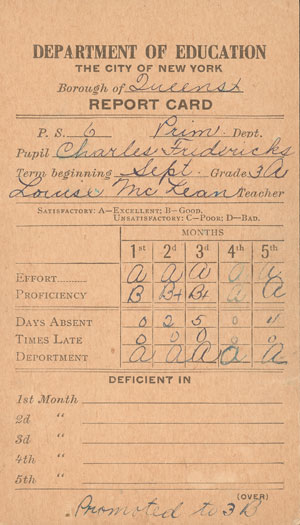 DEPARTMENT OF EDUCATION
THE CITY OF NEW YORK
Borough of Queens
REPORT CARD
P. S. 6 Prim. Dept.
Pupil Charles Fredericks
Term beginning Sept. Grade 3A
Louise McLean Teacher
SATISFACTORY: A—EXCELLENT; B—GOOD.
UNSATISFACTORY: C—POOR; D—BAD.
MONTHS
1st 2d 3d 4th 5th
EFFORT A A A A A
PROFICIENCY B B+ B+ A A
DAYS ABSENT 0 2 5 0
TIMES LATE 0 0 0 0
DEPORTMENT A A A A A
DEFICIENT IN
1st Month
2d "
3d "
4th "
5th "
(OVER)
Promoted to 3B